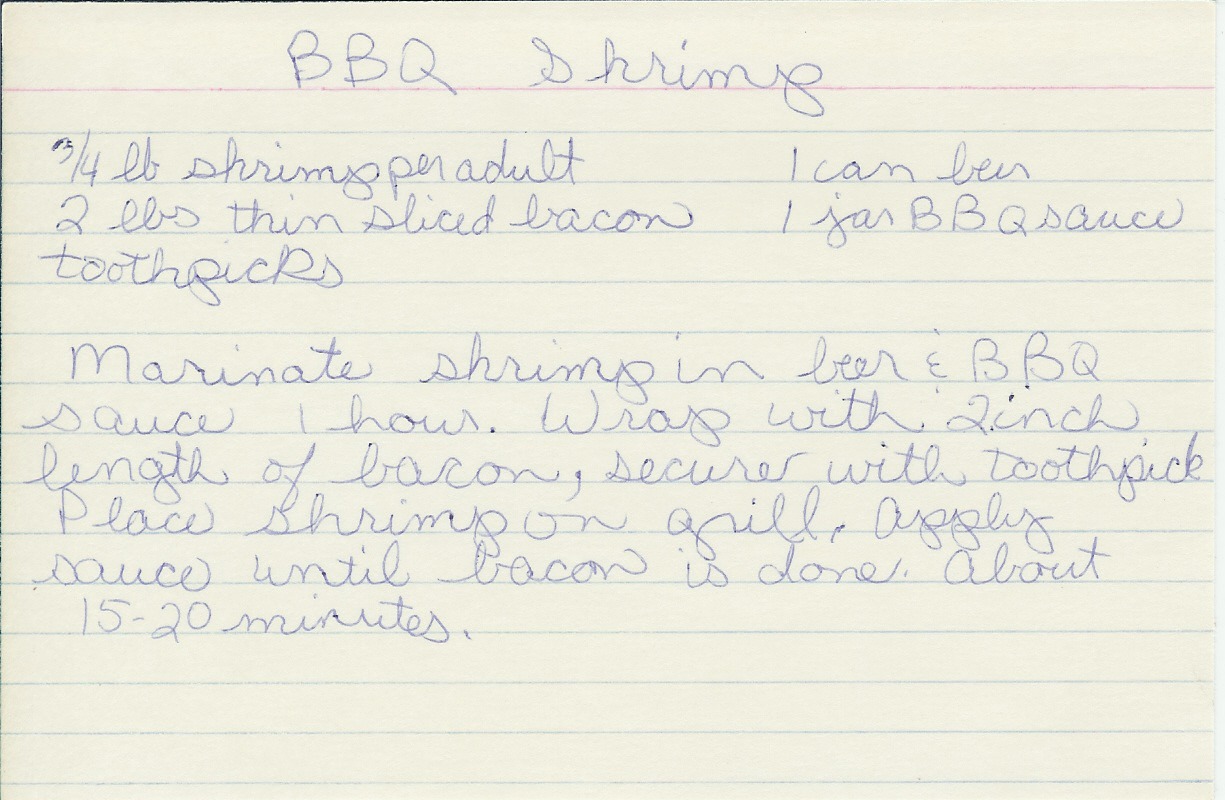 BBQ Shrimp
3/4 lb shrimp per adult 1 can beer
2 lbs thin sliced bacon 1 jar BBQ sauce
toothpicks
Marinate shrimp in beer & BBQ
sauce 1 hour. Wrap with 2 inch
length of bacon, secure with toothpick
Place shrimp on grill. Apply
sauce until bacon is done. About
15-20 minutes.